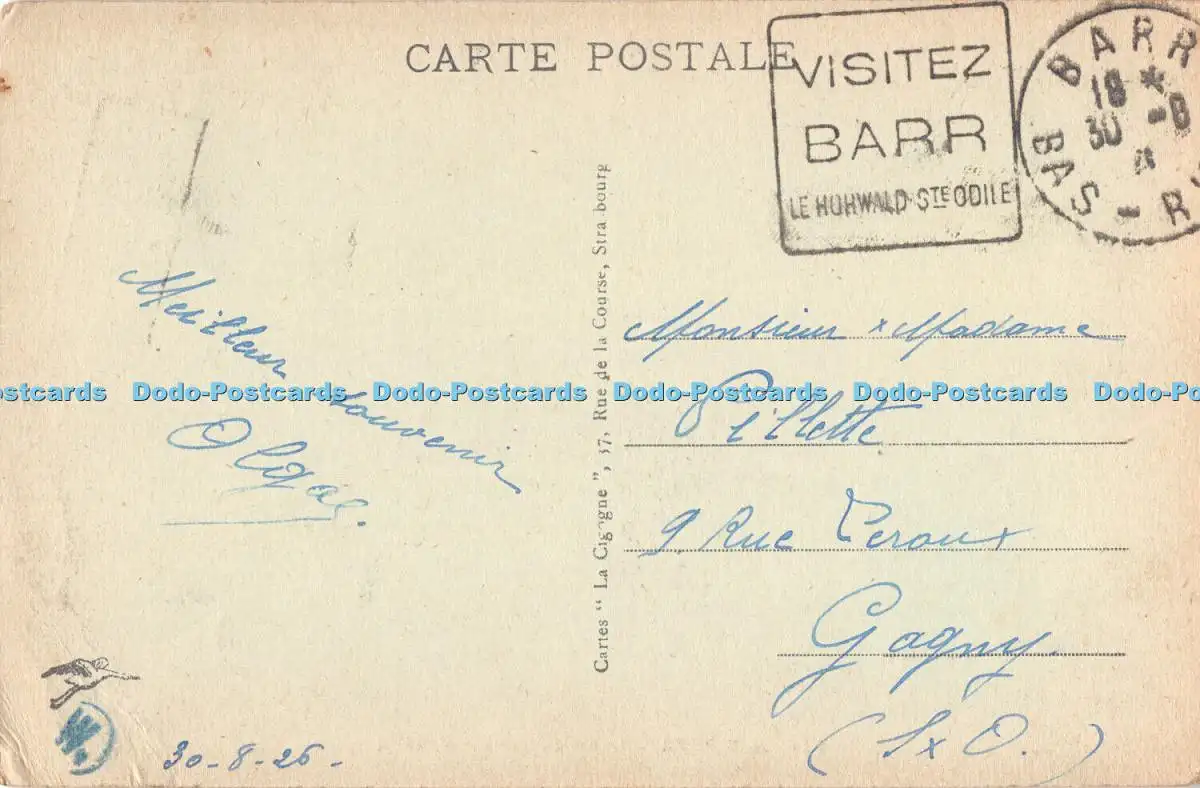 CARTE POSTALE
VISITEZ
BARR
LE HOHWALD-STE ODILE
BARR
18 *
30 -8
BAS - R
Meilleur
souvenir
Olgac.
Monsieur x Madame
Pillette
9 Rue Peroux
Gagny.
(S x O.)
Cartes "La Cigogne", 37, Rue de la Course, Strasbourg
Postcards Dodo-Postcards Dodo-Postcards Dodo-Postcards Dodo-Postcards Dodo-
W.
30-8-26-